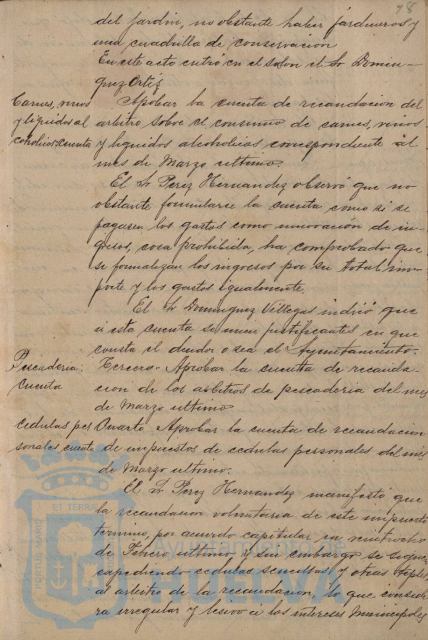 98
del jardin, no obstante haber jardineros y
una cuadrilla de conservacion
En este acto entró en el salon el Sr Domin-
guez Ortiz
Carnes, vinos
y liquidos al
coholicos. Cuenta
Aprobar la cuenta de recaudacion del
arbitrio sobre el consumo de carnes, vinos
y liquidos alcoholicos correspondiente al
mes de Marzo ultimo.
El Sr Perez Hernandez observó que no
obstante formularse la cuenta como si se
pagasen los gastos como minoración de in-
gresos, cosa prohibida, ha comprobado que
se formalizan los ingresos por su total im-
porte y los gastos igualmente.
El Sr Dominguez Villegas indicó que
á esta cuenta se unen justificantes en que
consta el deudor o sea el Ayuntamiento.
Pescaderia.
Cuenta
Tercero. Aprobar la cuenta de recauda-
cion de los arbitrios de pescaderia del mes
de Marzo ultimo
Cedulas per
sonales cuenta
Cuarto. Aprobar la cuenta de recaudacion
de impuestos de cedulas personales del mes
de Marzo ultimo.
El Sr Perez Hernandez manifestó que
la recaudacion voluntaria de este impuesto
terminó, por acuerdo capitular, en veintiocho
de Febrero ultimo y sin embargo se siguen
expediendo cedulas sencillas y otras
al arbitrio de la recaudacion, lo que conside-
ra irregular y lesivo á los intereses Municipales
PORTUS MARIS ET TERRAE